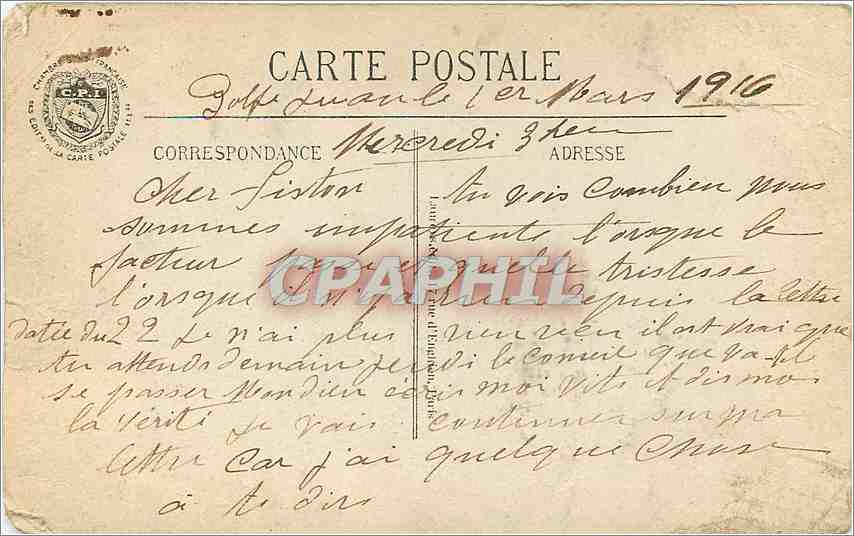 CARTE POSTALE
Golfe Juan le 1er Mars 1916
CHAMBRE FRANÇAISE
C.P.I
DE LA CARTE POSTALE ILLée
CORRESPONDANCE
Mercredi 3h
ADRESSE
Cher Gaston tu vois combien nous
sommes impatients l'orsque le
facteur et quelle tristesse
l'orsque il n'y a rien depuis la lettre
datée du 22 Je n'ai plus rien reçu il est vrai que
tu attends demain jeudi le conseil que va-t-il
se passer Mon dieu écris moi vite et dis moi
la vérité je vais continuer sur ma
lettre car j'ai quelque chose
à te dire
d'Enghien, Paris
CPAPHIL